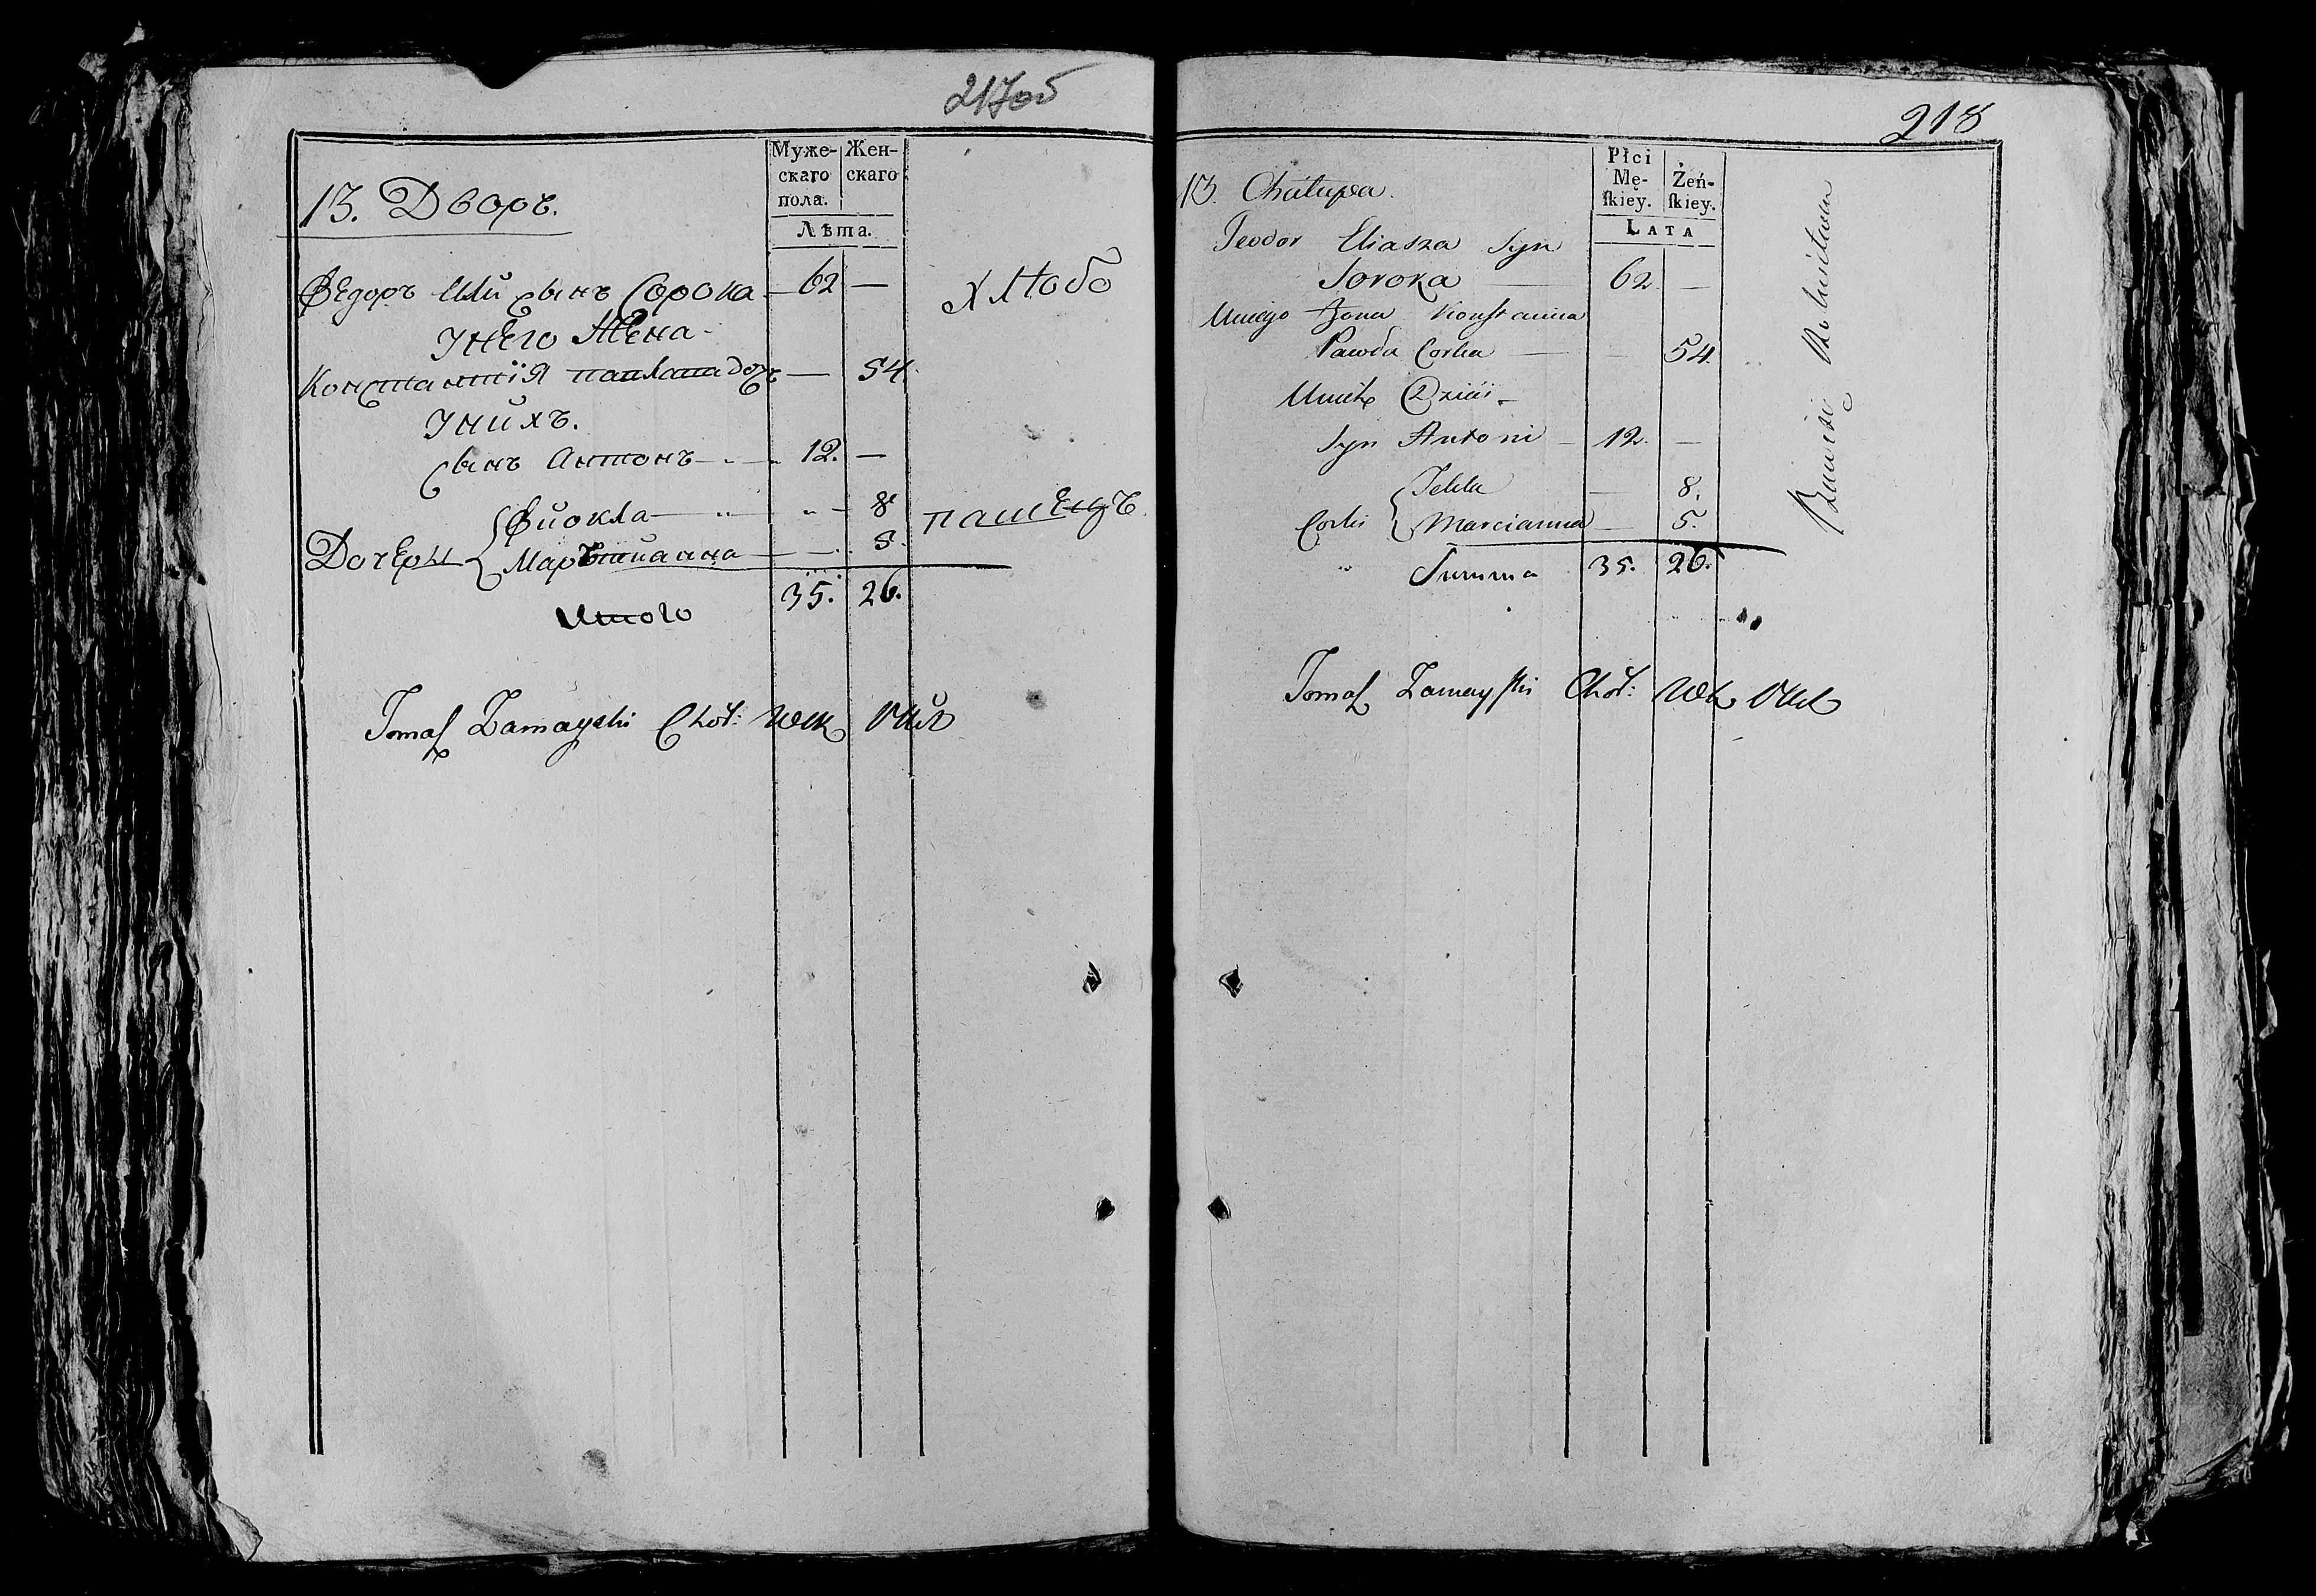 217об
Муже-
скаго
пола.
Жен-
скаго
Лѣта.
13. Дворъ.
Ѳедоръ Или сынъ Сорока — 62 —
хлѣбо
Унего Жена
Константія павлова дочь — 54.
Унихъ.
сынъ Антонъ — 12. —
Дочери { Фиокла — 8
пашецъ
Марцианна — 5.
Итого 35. 26.
Tomasz Zamayski Chor: Wek
218
Płci
Mę-
ſkiey.
Żeń-
ſkiey.
LATA
13. Chałupa.
Teodor Eliasza Syn
Soroka — 62. —
Uniego Żona Konstancia
Pawła Corka — 54.
Unich Dzieci
Syn Antoni — 12. —
Corki { Tekla — 8.
Marcianna — 5.
Summa 35. 26.
Tomasz Zamayski Chor: